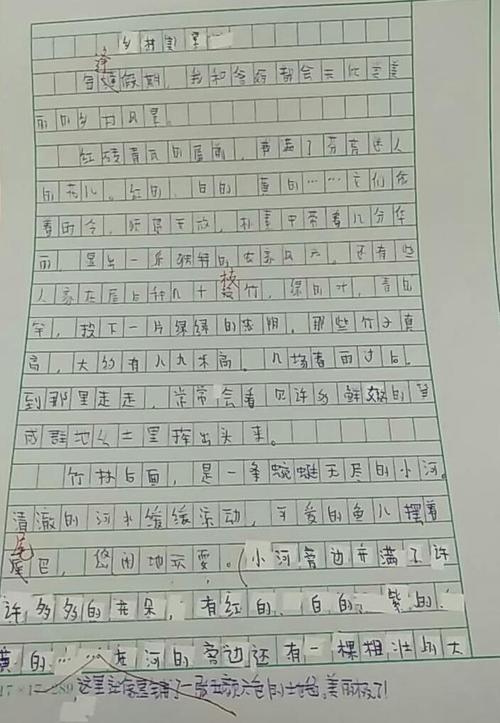 乡村美景
逢
每逢假期，我和爸妈都会去欣赏美
丽的乡村风景。
红砖青瓦的屋前，养满了芬芳迷人
的花儿。红的、白的、黄的……它们合
着时令，顺序开放，朴素中带着几分华
丽，显出一派独特的农家风光。还有些
枝
人家在屋后种几十枝竹，绿的叶，青的
竿，投下一片绿绿的浓阴。那些竹子真
高，大约有八九米高。几场春雨过后，
到那里走走，常常会看见许多鲜嫩的笋
成群地从土里探出头来。
竹林后面，是一条蜿蜒无尽的小河。
清澈的河水缓缓流动，可爱的鱼儿摆着
尾
尾巴，悠闲地玩耍。小河旁边开满了许
许多多的花朵，有红的、白的、紫的、
黄的……在河的旁边还有一棵粗壮的大
17×17=289 这里
美丽极了!